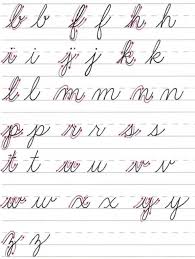 b b f f h h
i i j j k k
l l m m n n
p p r r s s
t t u u v v
w w x x y y
z z